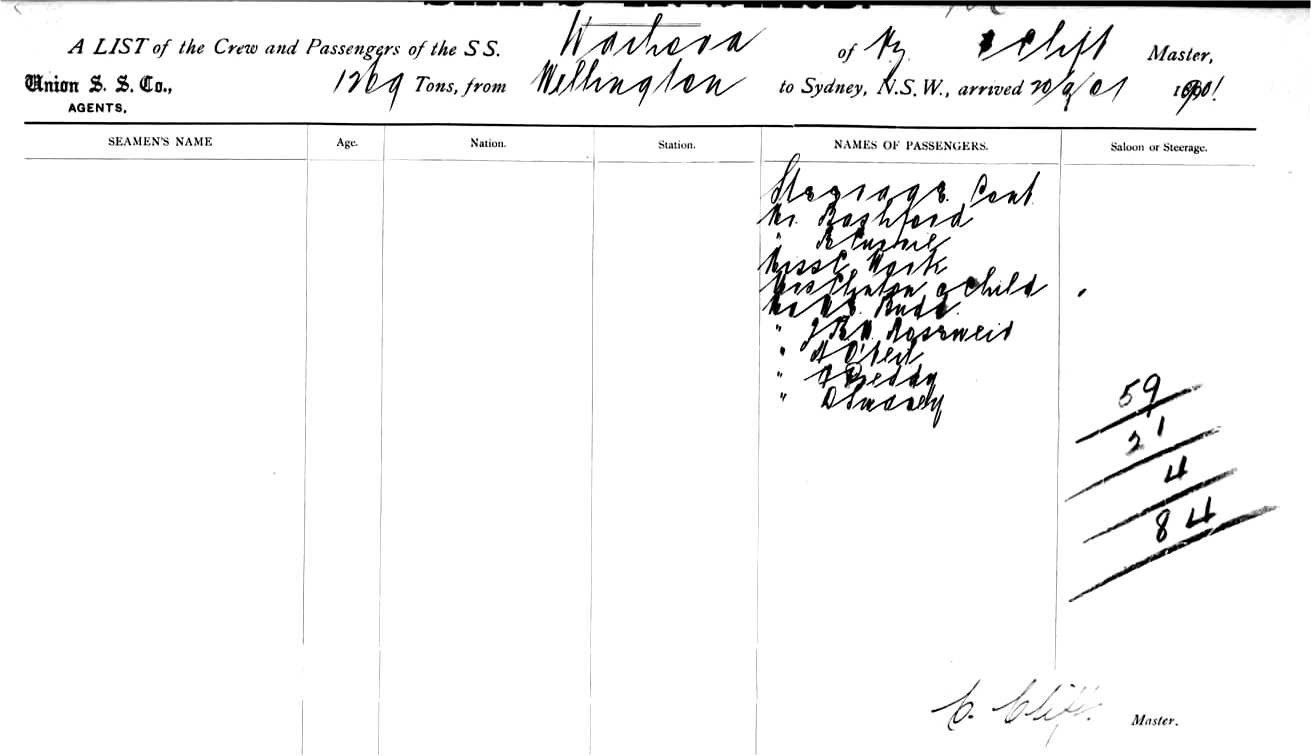 A LIST of the Crew and Passengers of the S S. Waihora of NZ C Clift Master,
Union S. S. Co., 1269 Tons, from Wellington to Sydney, N.S.W., arrived 20/9/01 1901
AGENTS.
SEAMEN'S NAME Age. Nation. Station. NAMES OF PASSENGERS. Saloon or Steerage.
Steerage Cont
Mr. Bashford
"
Miss C Work
Mrs Clinton & Child
Mr Budd
" J B W
" A O'Neil
" Reddy
" D
59
21
4
84
C. Clift. Master.